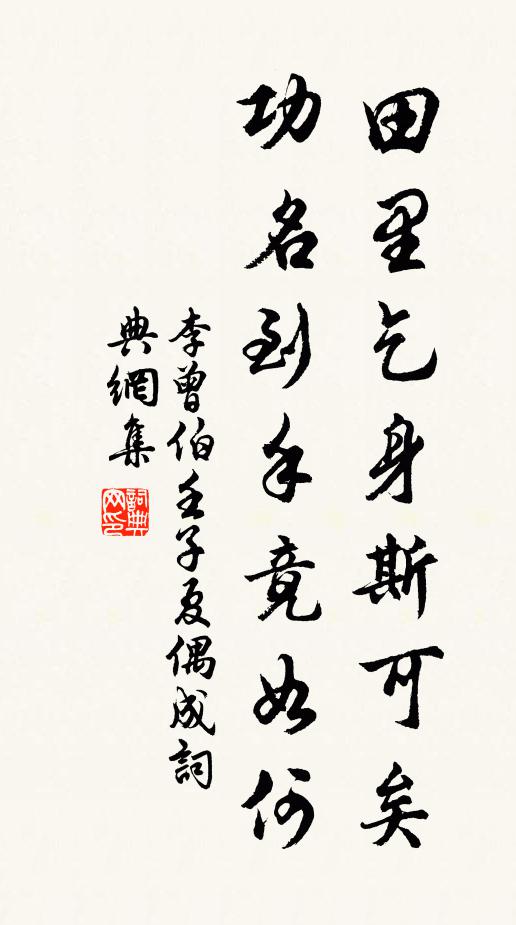 田里乞身斯可矣
功名到手竟如何
李曾伯壬子夏偶成詞
典網集
詞典
网印